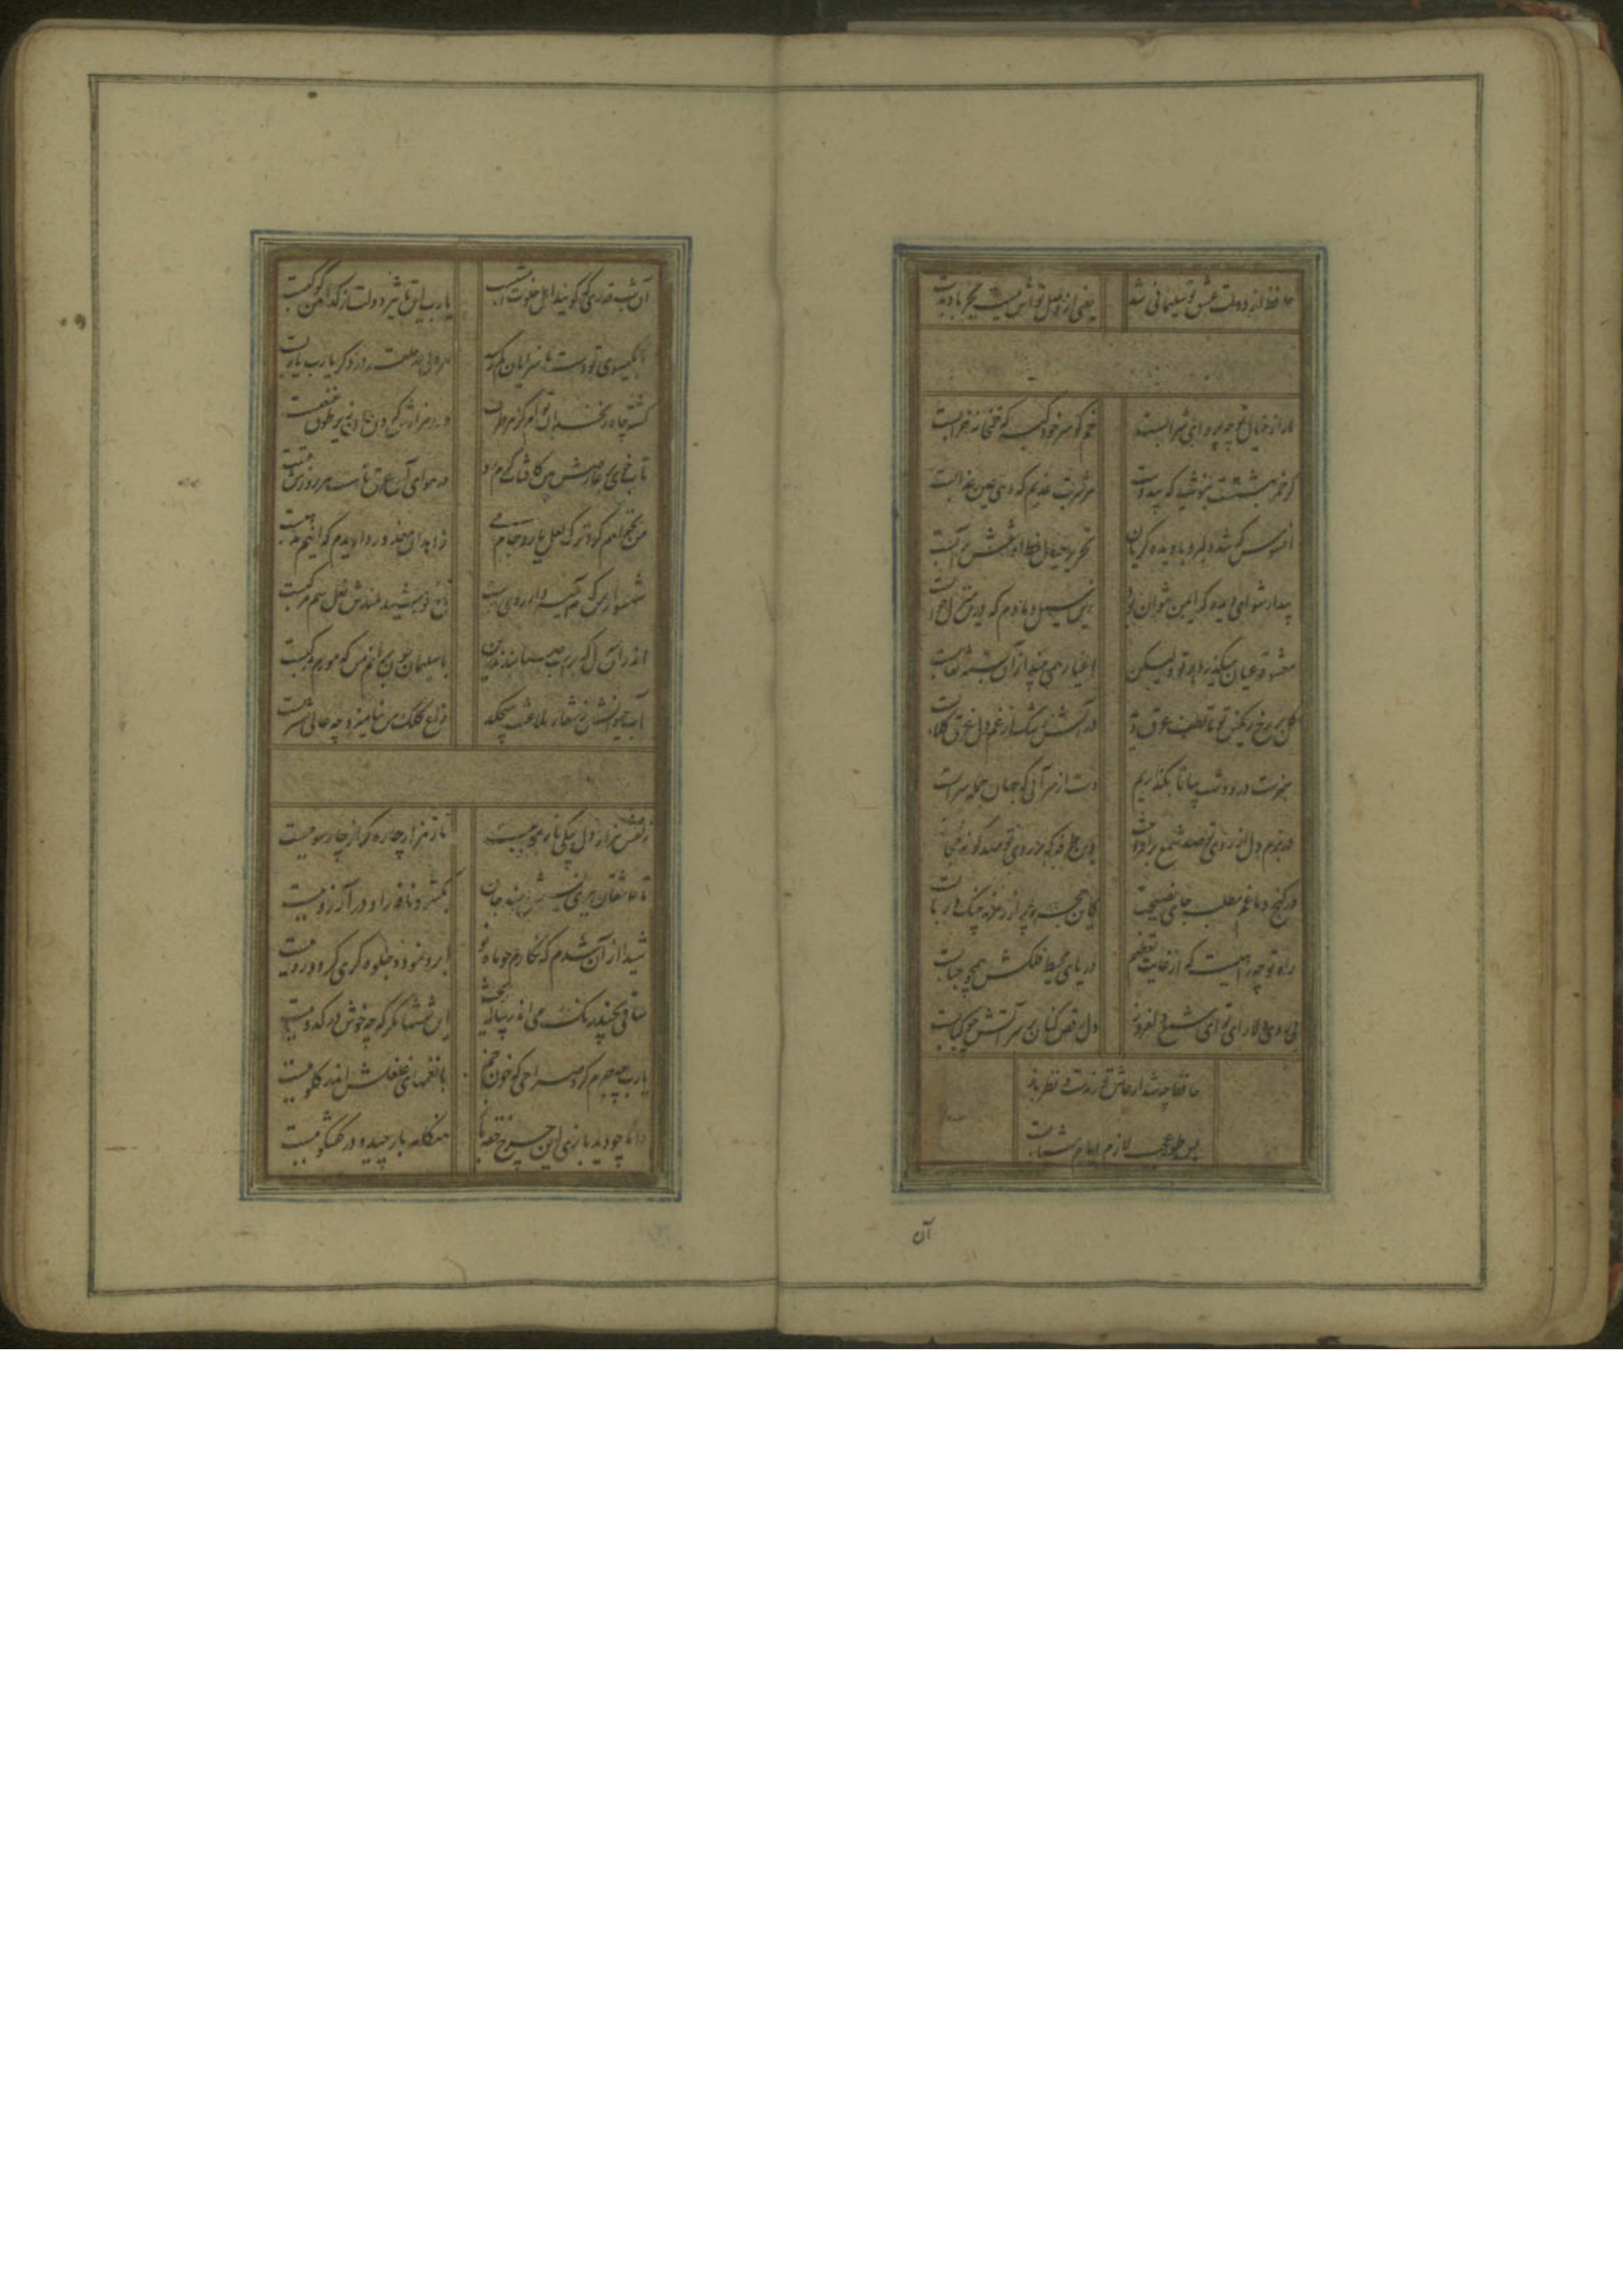 حافظ از دولت عشق تو سلیمانی شد
یعنی از وصل تواش نیست بجز باد بدست
ما را ز خیال تو چه پروای شرابست
خم گو سر خود گیر که خمخانه خرابست
گر خمر بهشتست بریزید که بیدوست
هر شربت عذبم که دهی عین عذابست
افسوس که شد دلبر و با دیده گریان
تحریر خیال خط او نقش بر آبست
بیدار شو ای دیده که ایمن نتوان بود
زین سیل دمادم که درین منزل خوابست
معشوقه عیان میگذرد بر تو ولیکن
اغیار همی بیند از آن بسته نقابست
گل بر رخ رنگین تو تا لطف عرق دید
در آتش رشک از غم دل غرق گلابست
سبزست در و دشت بیا تا نگذاریم
دست از سر آبی که جهان جمله سرابست
در بزم دل از روی تو صد شمع برافروخت
وین طرفه که بر روی تو صد گونه حجابست
در کنج دماغم مطلب جای نصیحت
کاین حجره پر از زمزمه چنگ و ربابست
راه تو چه راهیست که از غایت تعظیم
دریای محیط فلکش همچو حبابست
بی روی دلارای تو ای شمع دلفروز
دل رقص کنان بر سر آتش چو کبابست
حافظ چه شد ار عاشق و رندست و نظر باز
بس طور عجب لازم ایام شبابست
آن
آن شب قدری که گویند اهل خلوت امشبست
یا رب این تاثیر دولت از کدامین کوکبست
تا بگیسوی تو دست ناسزایان کم رسد
هر دلی در حلقه در ذکر یارب یاربست
کشته چاه زنخدان توام کز هر طرف
صد هزارش گردن جان زیر طوق غبغبست
تاب خوی بر عارضش بین کافتاب گرم رو
در هوای آن عرق تا هست هر روزش تبست
من نخواهم کرد ترک لعل یار و جام می
زاهدان معذور داریدم که اینم مذهبست
شهسوار من که مه آیینه دار روی اوست
تاج خورشید بلندش نعل سم مرکبست
اندر آن ساعت که بر پشت صبا بندند زین
با سلیمان چون برانم من که مورم مرکبست
آب حیوانش ز منقار بلاغت میچکد
زاغ کلک من بنامیزد چه عالی مشربست
زلفش هزار دل بیکی تاره مو ببست
راه هزار چاره گر از چار سو ببست
تا عاشقان ببوی نسیمش دهند جان
بگشود نافه را و در آرزو ببست
شیدا از آن شدم که نگارم چو ماه نو
ابرو نمود و جلوه گری کرد و رو ببست
ساقی بچند رنگ می اندر پیاله ریخت
این نقشها نگر که چه خوش در کدو ببست
یارب چه جرم کرد صراحی که خون خم
با نغمهای قلقلش اندر گلو ببست
دانا چو دید بازی این چرخ حقه باز
هنگامه باز چید و در گفتگو ببست